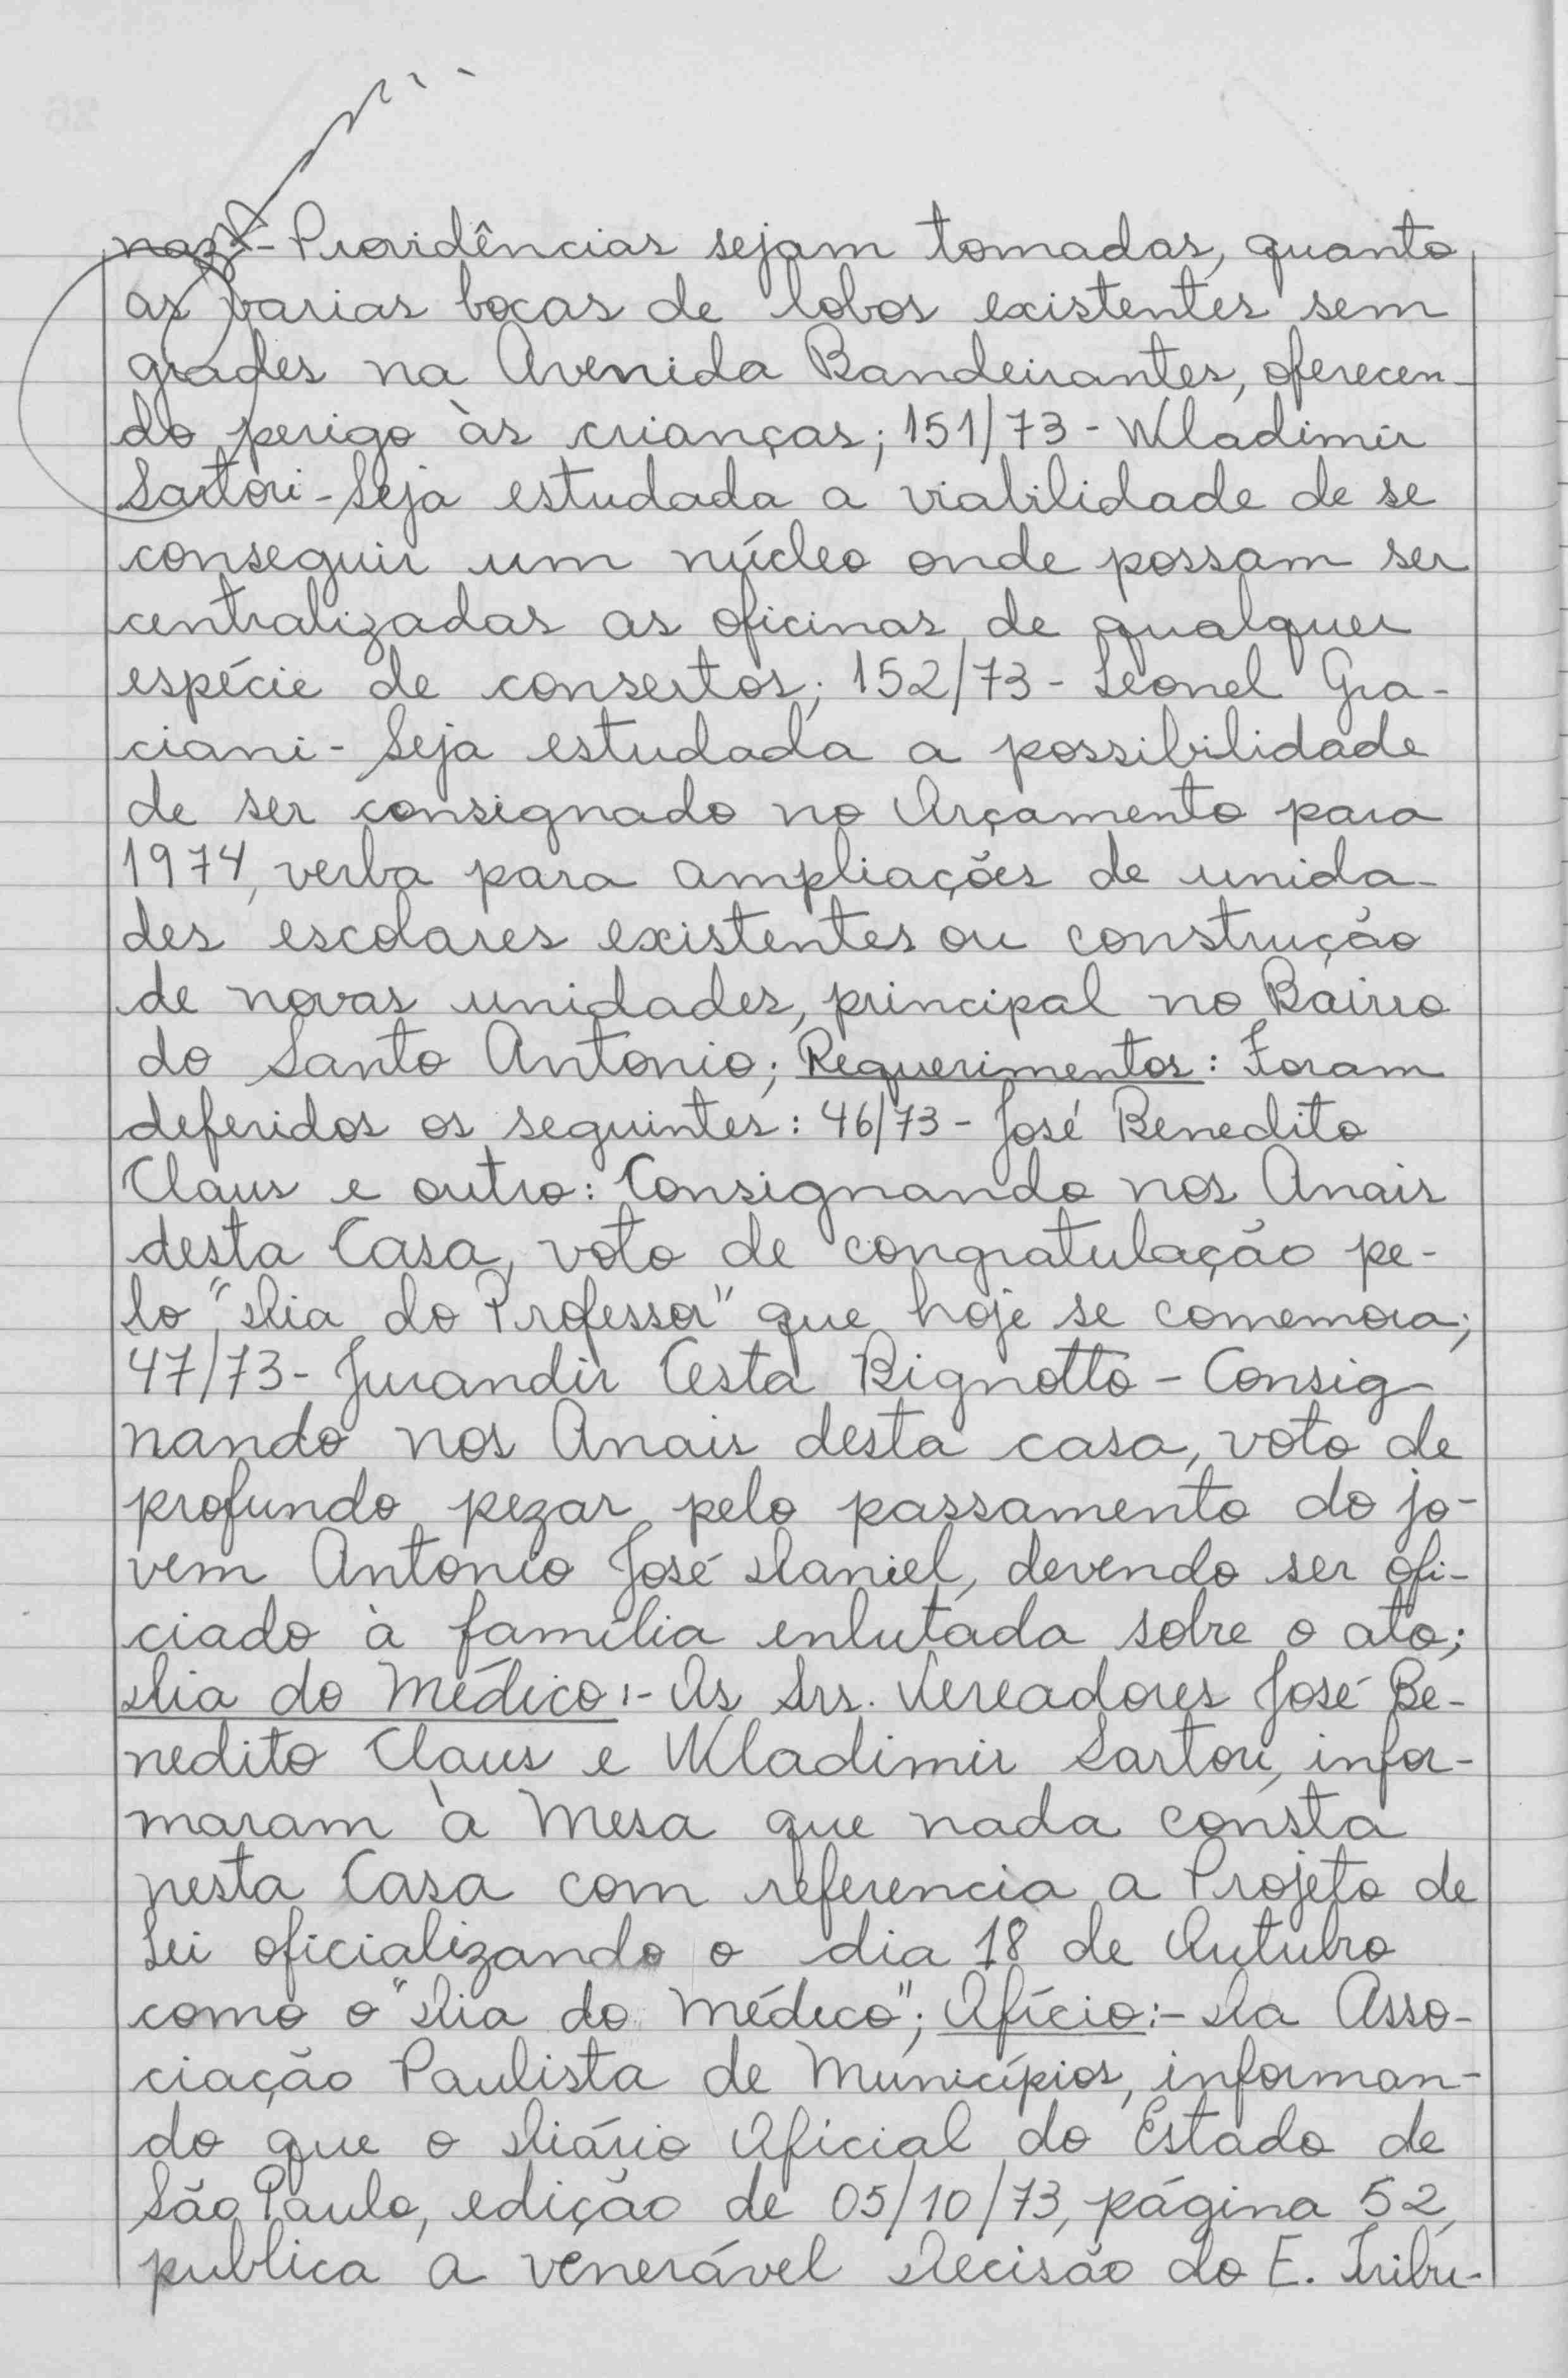 naz:- Providências sejam tomadas, quanto
as varias bocas de lobos existentes sem
grades na Avenida Bandeirantes, oferecen-
do perigo às crianças; 151/73 - Wladimir
Sartori - Seja estudada a viabilidade de se
conseguir um núcleo onde possam ser
centralizadas as oficinas de qualquer
espécie de consertos; 152/73 - Leonel Gra-
ciani - Seja estudada a possibilidade
de ser consignado no Orçamento para
1974, verba para ampliações de unida-
des escolares existentes ou construção
de novas unidades, principal no Bairro
do Santo Antonio; Requerimentos: Foram
deferidos os seguintes: 46/73 - José Benedito
Claus e outro: Consignando nos Anais
desta Casa, voto de congratulação pe-
lo "Dia do Professor" que hoje se comemora;
47/73 - Jurandir Cesta Bignotto - Consig-
nando nos Anais desta casa, voto de
profundo pezar pelo passamento do jo-
vem Antonio José Daniel, devendo ser ofi-
ciado à família enlutada sobre o ato;
Dia do Médico:- Os Srs. Vereadores José Be-
nedito Claus e Wladimir Sartori, infor-
maram à Mesa que nada consta
nesta Casa com referencia a Projeto de
Lei oficializando o dia 18 de Outubro
como o "Dia do Médico"; Ofício:- Da Asso-
ciação Paulista de Municípios, informan-
do que o Diário Oficial do Estado de
São Paulo, edição de 05/10/73, página 52,
publica a venerável Decisão do E. Tribu-